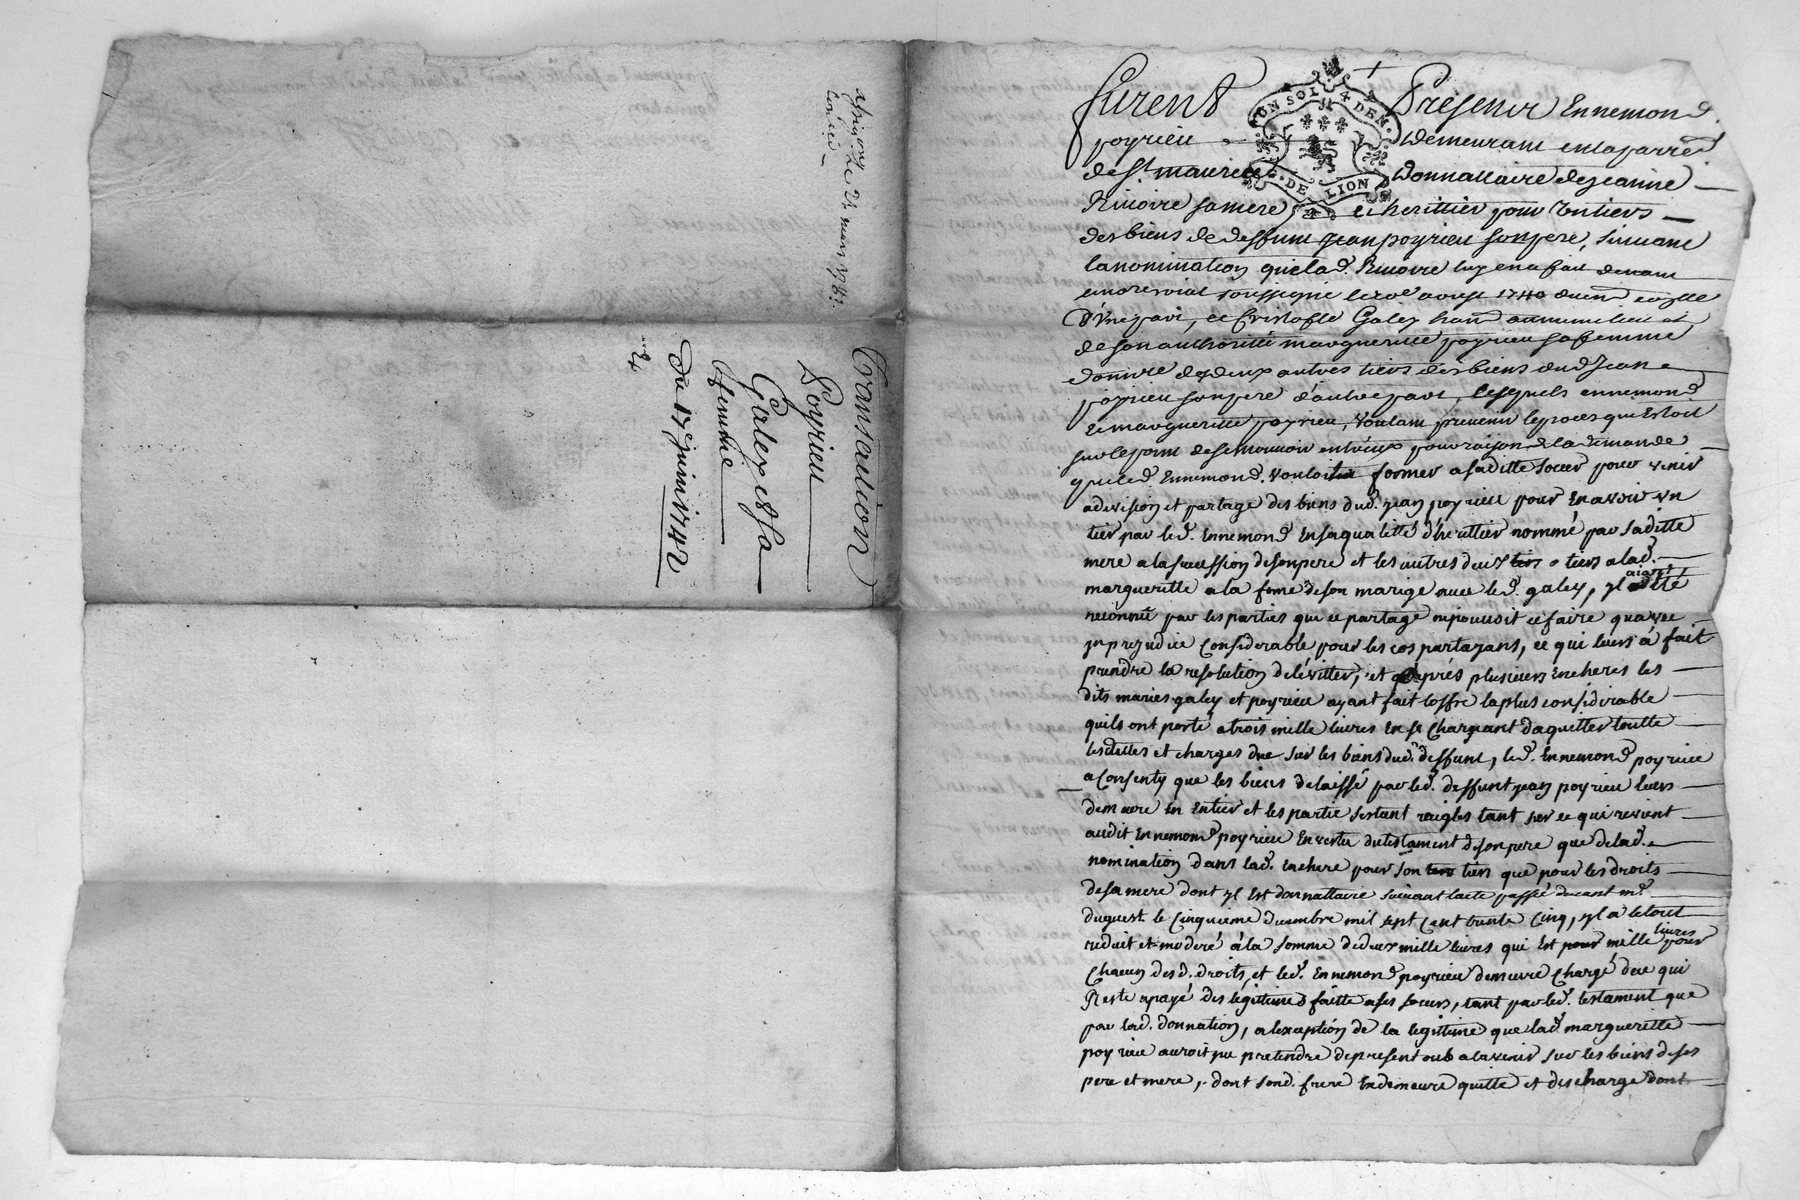 Transaction
Poyrieu
Galey et sa
femme
Du 17e juin 1742
UN SOL 4 DEN.
DE LION
furent Presents Ennemond
poyrieu demeurant en la parre
de St maurice Donnattaire de jeanne
Rivoire sa mere et herittier pour un tiers
des biens de deffunt jean poyrieu son pere, suivant
la nomination que lad. Rivoire luy en a fait devant
le notre roial soussigné le aoust 1740
d'une part, et Cristofle Galey
de son authorité margueritte poyrieu sa femme
des deux autres tiers des biens dud. Jean
poyrieu son pere d'autre part, lesquels ennemond
et margueritte poyrieu, voulant prevenir le proces qui estoit
sur le point de se mouvoir entreux pour raison de la demande
que led. Ennemond. vouloit former a sa ditte soeur pour venir
a division et partage des biens dud. jean poyrieu pour en avoir un
tier par led. Ennemond en sa qualitté d'herittier nommé par sa ditte
mere a la succession de son pere et les autres deux tiers a lad.
margueritte a la forme de son marige avec led. galey, yl a été
reconnu par les parties que ce partage ne pouvoit ce faire qu'avec
un prejudice considerable pour les cos partazans, ce qui leurs a fait
prendre la resolution de lévitter, et aprés plusieurs encheres les
dits maries galey et poyrieu ayant fait loffre la plus considerable
quils ont porté a trois mille livres en se chargeant daquetter toutte
les dettes et charges due sur les biens dud. deffunt, led. Ennemond poyrieu
a consenty que les biens delaissé par led. deffunt jean poyrieu leurs
demeure en entier et les partie sestant reigles tant sur ce qui revient
audit Ennemond poyrieu en vertu du testament de son pere que de lad.
nomination dans lad. enchere pour son tiers que pour les droits
de sa mere dont yl est donnattaire suivant lacte passée devant me.
duguest le cinquieme decembre mil sept cent trente cinq, yl a le tout
reduit et moderé à la somme de deux mille livres qui est mille livres pour
chacun des d. droits, et led. Ennemond poyrieu demeure chargé de ce qui
Reste a payé des legittimes faitte a ses soeurs, tant par led. testament que
par lad. donnation, a lexception de la legittime que lad. margueritte
poyrieu auroit pu pretendre de present ou a lavenir sur les biens de ses
pere et mere, dont sond. frere en demeure quitte et descharge dont